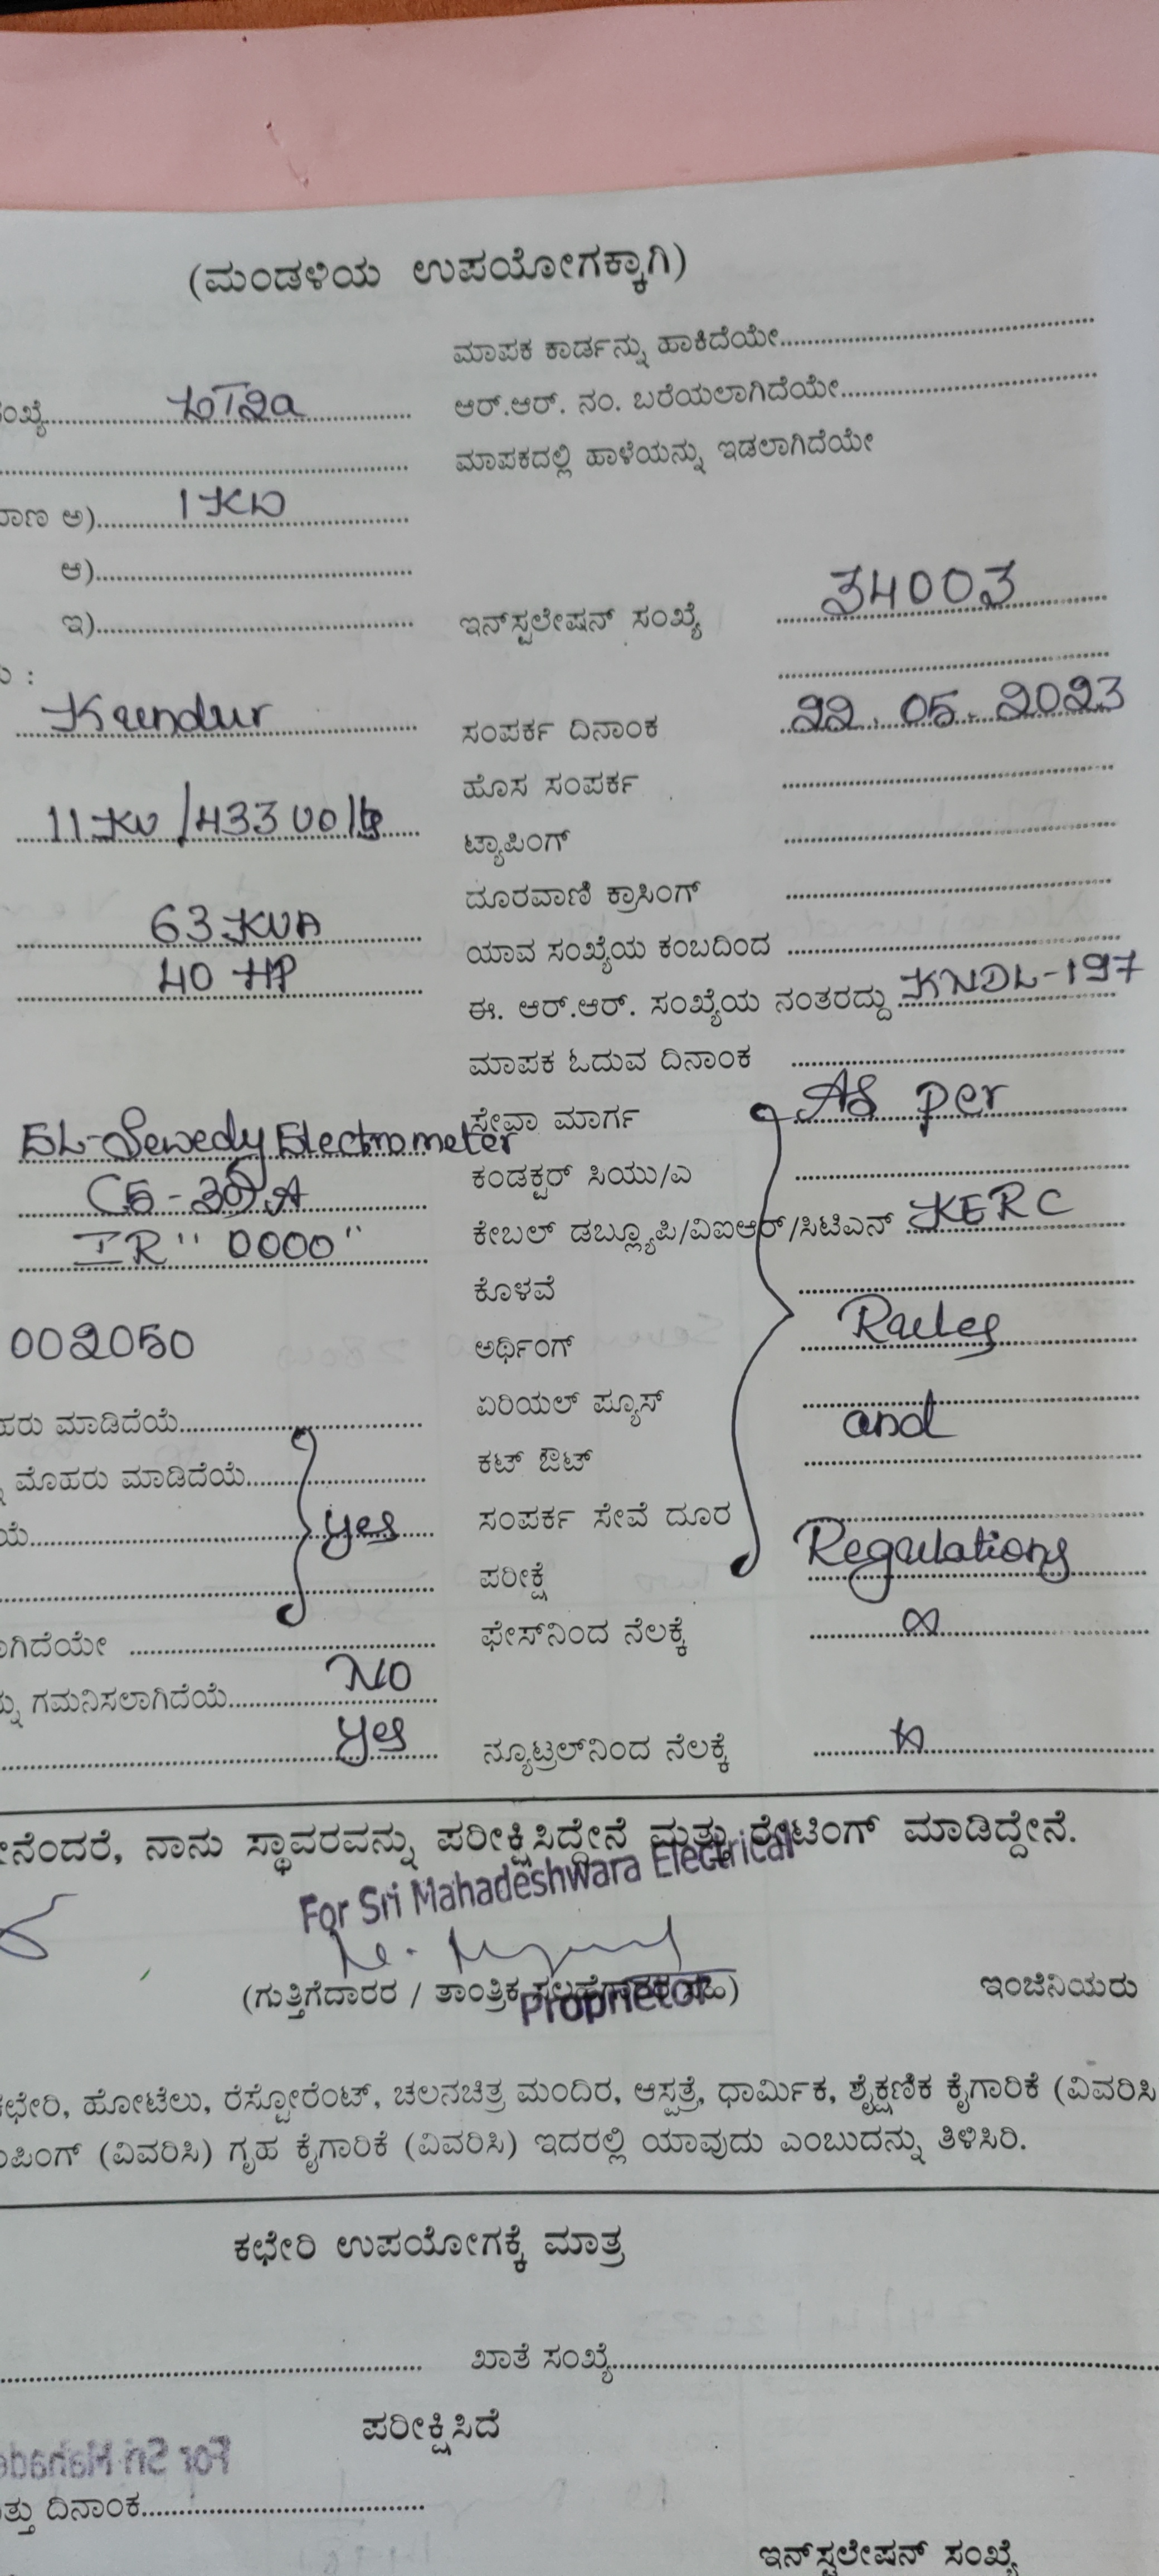 (ಮಂಡಳಿಯ ಉಪಯೋಗಕ್ಕಾಗಿ)
ಮಾಪಕ ಕಾರ್ಡನ್ನು ಹಾಕಿದೆಯೇ
LT2a
ಆರ್.ಆರ್. ನಂ. ಬರೆಯಲಾಗಿದೆಯೇ
ಮಾಪಕದಲ್ಲಿ ಹಾಳೆಯನ್ನು ಇಡಲಾಗಿದೆಯೇ
ಅ) 1 KW
ಆ)
ಇ)
ಇನ್‌ಸ್ಟಲೇಷನ್ ಸಂಖ್ಯೆ 34003
Kundur
ಸಂಪರ್ಕ ದಿನಾಂಕ 22.05.2023
ಹೊಸ ಸಂಪರ್ಕ
11 KV/433 Volts
ಟ್ಯಾಪಿಂಗ್
ದೂರವಾಣಿ ಕ್ರಾಸಿಂಗ್
63 KVA
ಯಾವ ಸಂಖ್ಯೆಯ ಕಂಬದಿಂದ
40 HP
ಈ. ಆರ್.ಆರ್. ಸಂಖ್ಯೆಯ ನಂತರದ್ದು KNDL-197
ಮಾಪಕ ಓದುವ ದಿನಾಂಕ
EL-Sewedy Electrometer
ಸೇವಾ ಮಾರ್ಗ As per
(5-30)A
ಕಂಡಕ್ಟರ್ ಸಿಯು/ಎ
IR "0000"
ಕೇಬಲ್ ಡಬ್ಲ್ಯೂಪಿ/ವಿಐಆರ್/ಸಿಟಿಎನ್ KERC
ಕೊಳವೆ
002050
ಅರ್ಥಿಂಗ್ Rules
ಮಾಡಿದೆಯೆ
ಏರಿಯಲ್ ಪ್ಯೂಸ್
and
ಮೊಹರು ಮಾಡಿದೆಯೆ
ಕಟ್ ಔಟ್
yes
ಸಂಪರ್ಕ ಸೇವೆ ದೂರ
ಪರೀಕ್ಷೆ Regulations
ಫೇಸ್‌ನಿಂದ ನೆಲಕ್ಕೆ ∞
ಗಮನಿಸಲಾಗಿದೆಯೆ NO
yes
ನ್ಯೂಟ್ರಲ್‌ನಿಂದ ನೆಲಕ್ಕೆ
ನಾನು ಸ್ಥಾವರವನ್ನು ಪರೀಕ್ಷಿಸಿದ್ದೇನೆ ಮತ್ತು ರೇಟಿಂಗ್ ಮಾಡಿದ್ದೇನೆ.
For Sri Mahadeshwara Electrical
(ಗುತ್ತಿಗೆದಾರರ / ತಾಂತ್ರಿಕ ಸಲಹೆಗಾರರ ಸಹಿ)
Proprietor
ಇಂಜಿನಿಯರು
ಹೋಟೆಲು, ರೆಸ್ಟೋರೆಂಟ್, ಚಲನಚಿತ್ರ ಮಂದಿರ, ಆಸ್ಪತ್ರೆ, ಧಾರ್ಮಿಕ, ಶೈಕ್ಷಣಿಕ ಕೈಗಾರಿಕೆ (ವಿವರಿಸಿ
(ವಿವರಿಸಿ) ಗೃಹ ಕೈಗಾರಿಕೆ (ವಿವರಿಸಿ) ಇದರಲ್ಲಿ ಯಾವುದು ಎಂಬುದನ್ನು ತಿಳಿಸಿರಿ.
ಕಛೇರಿ ಉಪಯೋಗಕ್ಕೆ ಮಾತ್ರ
ಖಾತೆ ಸಂಖ್ಯೆ
ಪರೀಕ್ಷಿಸಿದೆ
ದಿನಾಂಕ
ಇನ್‌ಸ್ಟಲೇಷನ್ ಸಂಖ್ಯೆ